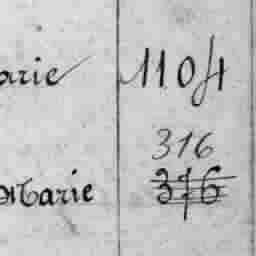 arie 1104
316
Marie 376